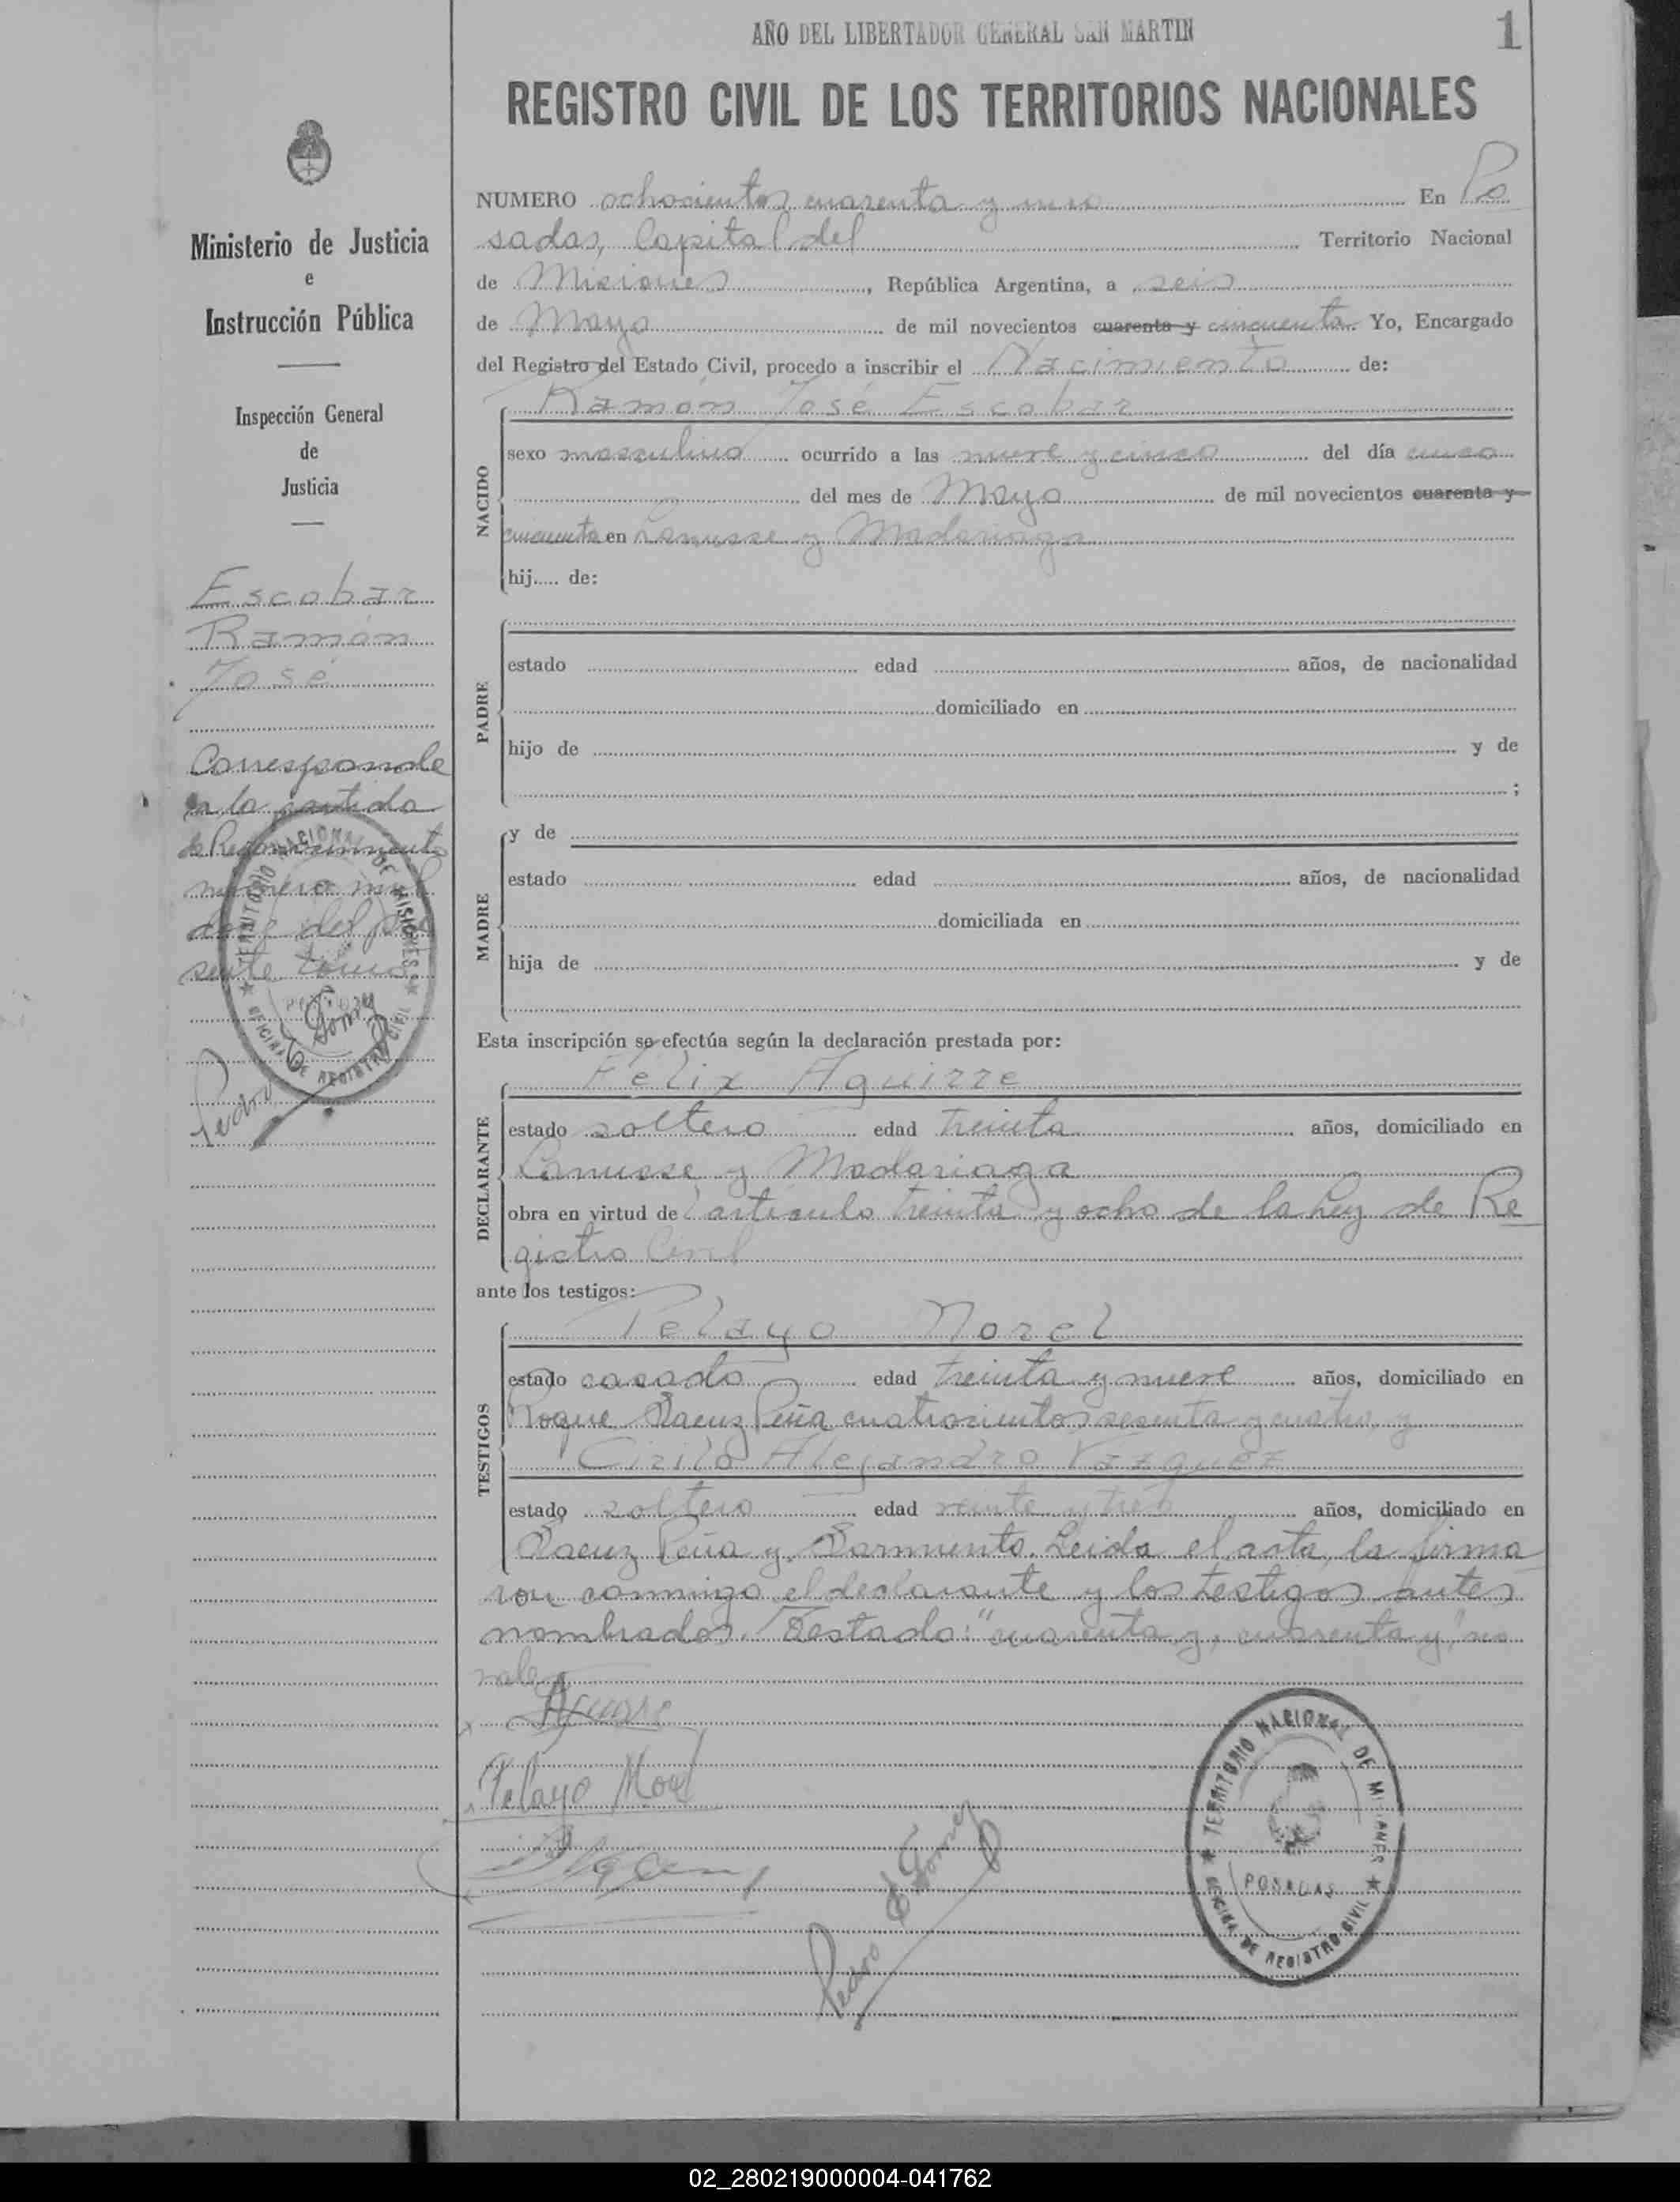 AÑO DEL LIBERTADOR GENERAL SAN MARTIN
1
REGISTRO CIVIL DE LOS TERRITORIOS NACIONALES
Ministerio de Justicia
e
Instrucción Pública
Inspección General
de
Justicia
Escobar
Ramón
José
Corresponde
a la partida
de Reconocimiento
número mil
doce del pre
sente tomo
TERRITORIO NACIONAL DE MISIONES
OFICINA DE REGISTRO CIVIL
Pedro Gomez
NUMERO ochocientos cuarenta y uno En Po
sadas, Capital del Territorio Nacional
de Misiones, República Argentina, a seis
de Mayo de mil novecientos cuarenta y cincuenta. Yo, Encargado
del Registro del Estado Civil, procedo a inscribir el Nacimiento de:
NACIDO
Ramón José Escobar
sexo masculino ocurrido a las nueve y cinco del día cinco
del mes de Mayo de mil novecientos cuarenta y
cincuenta en Lanusse y Madariaga
hij..... de:
PADRE
estado edad años, de nacionalidad
domiciliado en
hijo de y de
;
MADRE
y de
estado edad años, de nacionalidad
domiciliada en
hija de y de
Esta inscripción se efectúa según la declaración prestada por:
DECLARANTE
Félix Aguirre
estado soltero edad treinta años, domiciliado en
Lanusse y Madariaga
obra en virtud del artículo treinta y ocho de la Ley de Re
gistro Civil
ante los testigos:
TESTIGOS
Pelayo Morel
estado casado edad treinta y nueve años, domiciliado en
Roque Saenz Peña cuatrocientos sesenta y cuatro, y
Cirilo Alejandro Vazquez
estado soltero edad veinte y tres años, domiciliado en
Saenz Peña y Sarmiento. Leida el acta, la firma
ron conmigo el declarante y los testigos antes
nombrados. Testado: "cuarenta y, cuarenta y", no
vale
Pelayo Morel
Pedro Gomez
TERRITORIO NACIONAL DE MISIONES
POSADAS
OFICINA DE REGISTRO CIVIL
02_280219000004-041762